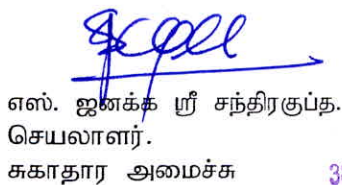 எஸ். ஜனக்க ஸ்ரீ சந்திரகுப்த.
செயலாளர்.
சுகாதார அமைச்சு